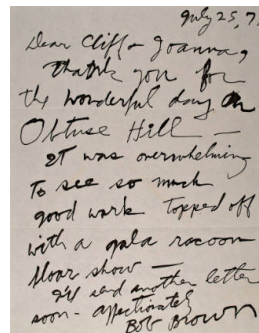 July 25, 7
Dear Cliff & Joanna,
Thank you for
the wonderful day on
Obtuse Hill —
It was overwhelming
to see so much
good work topped off
with a gala racoon
floar show —
I'll send another letter
soon - affectionately
Bob Brown